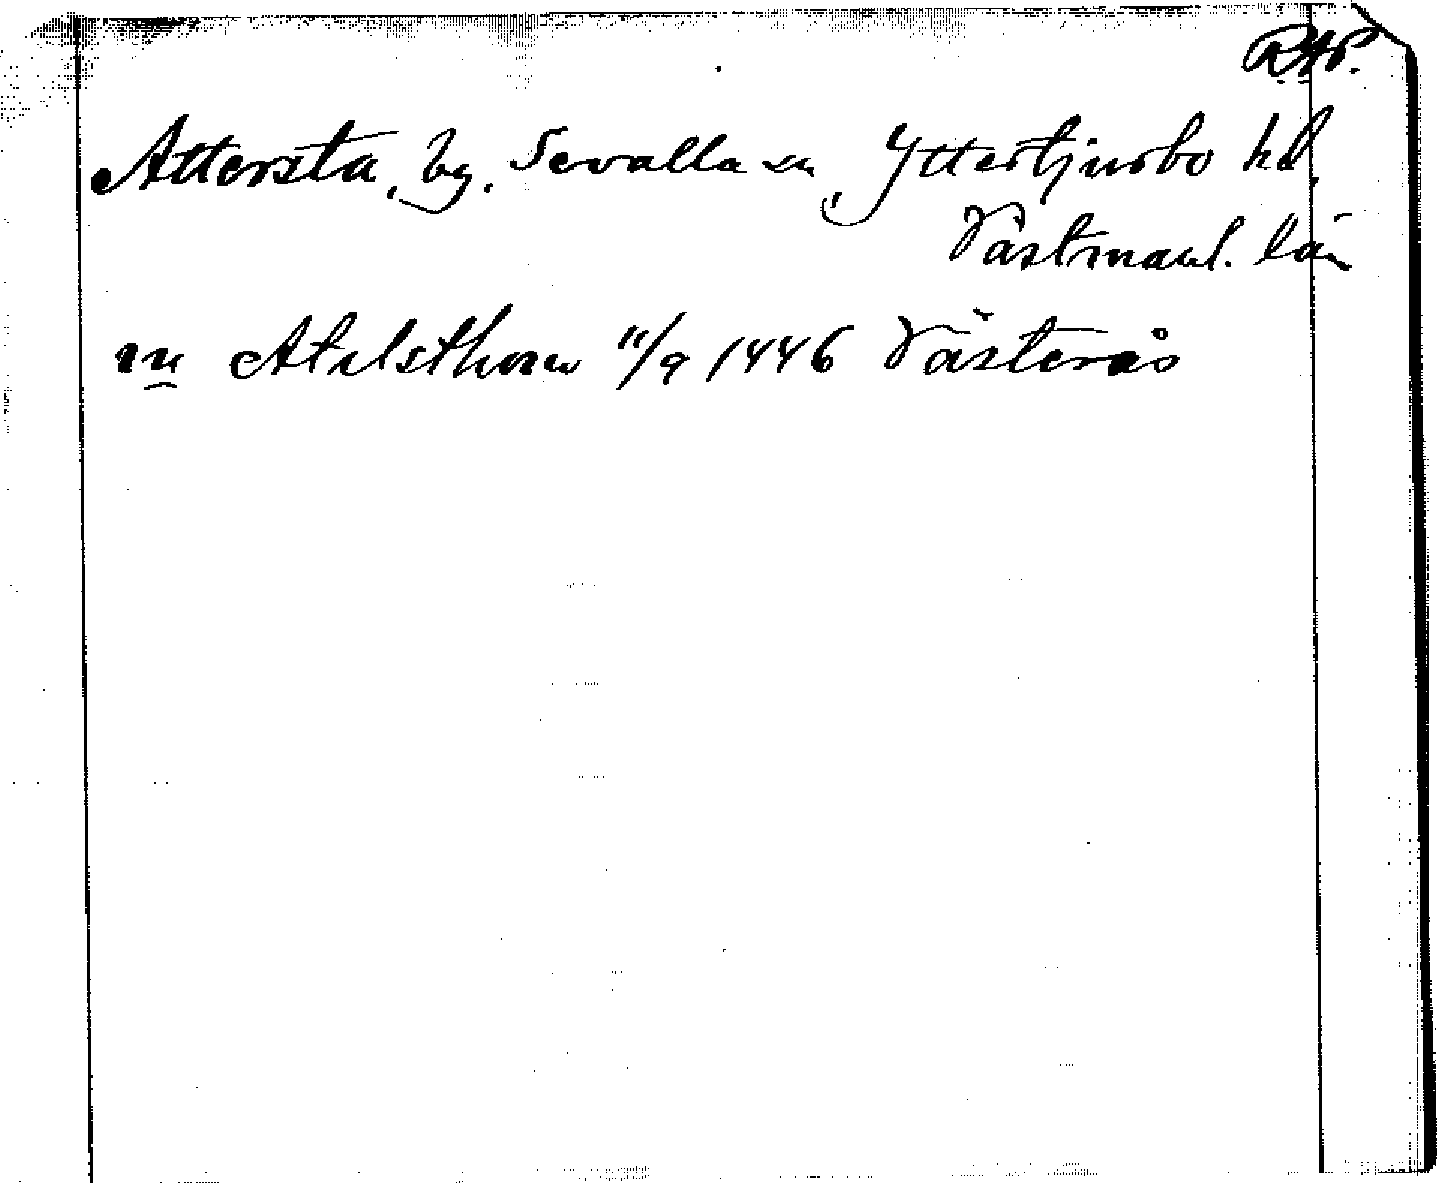 RAP.
Attersta, by. Sevalla sn, Yttertjurbo hd.
Västmanl. län
Atelsthorw 11/9 1446 Västerås